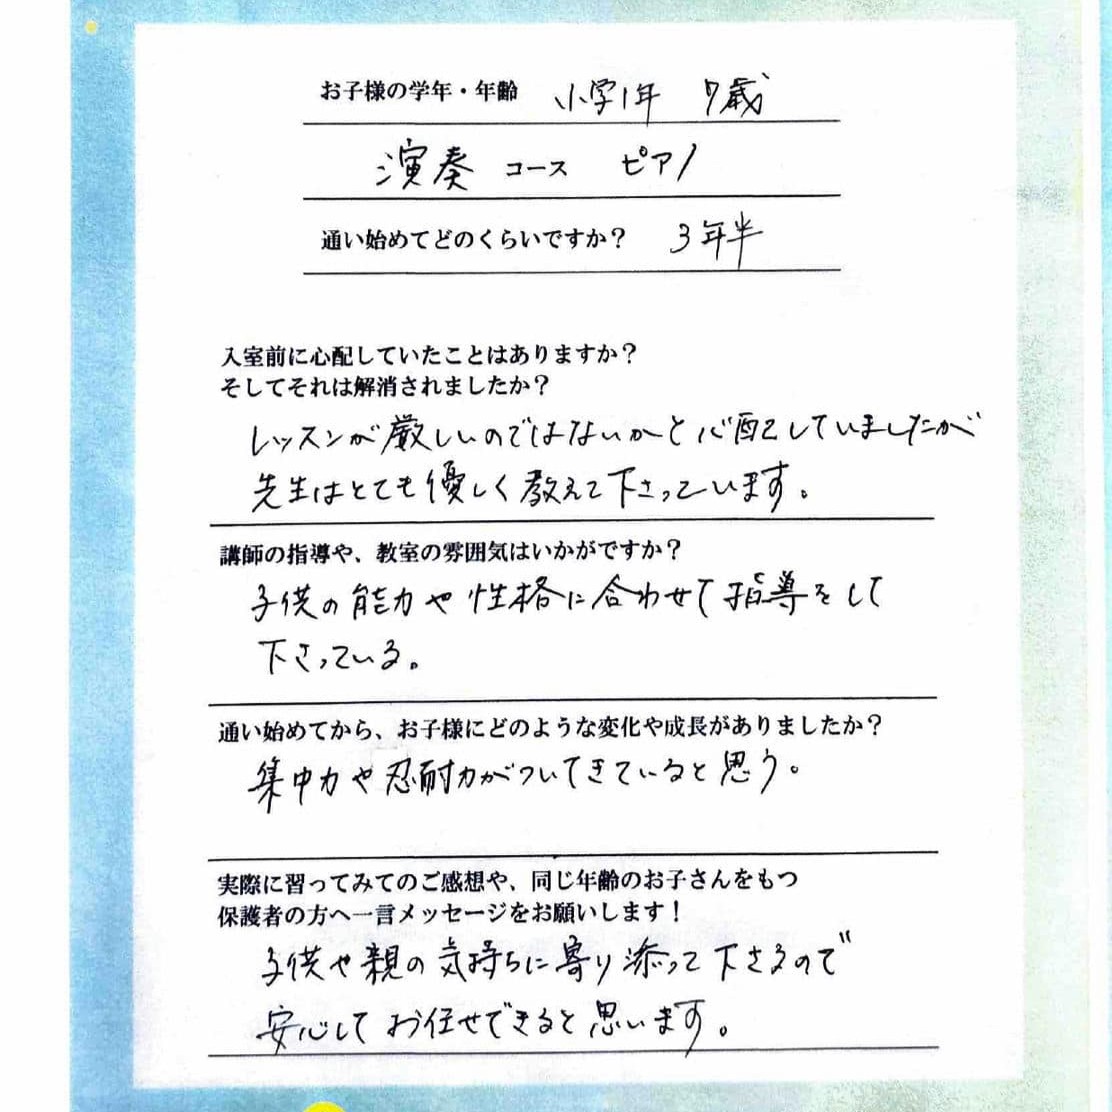 お子様の学年・年齢 小学1年 7歳
演奏 コース ピアノ
通い始めてどのくらいですか? 3年半
入室前に心配していたことはありますか?
そしてそれは解消されましたか?
レッスンが厳しいのではないかと心配していましたが
先生はとても優しく教えて下さっています。
講師の指導や、教室の雰囲気はいかがですか?
子供の能力や性格に合わせて指導をして
下さっている。
通い始めてから、お子様にどのような変化や成長がありましたか?
集中力や忍耐力がついてきていると思う。
実際に習ってみてのご感想や、同じ年齢のお子さんをもつ
保護者の方へ一言メッセージをお願いします!
子供や親の気持ちに寄り添って下さるので
安心してお任せできると思います。